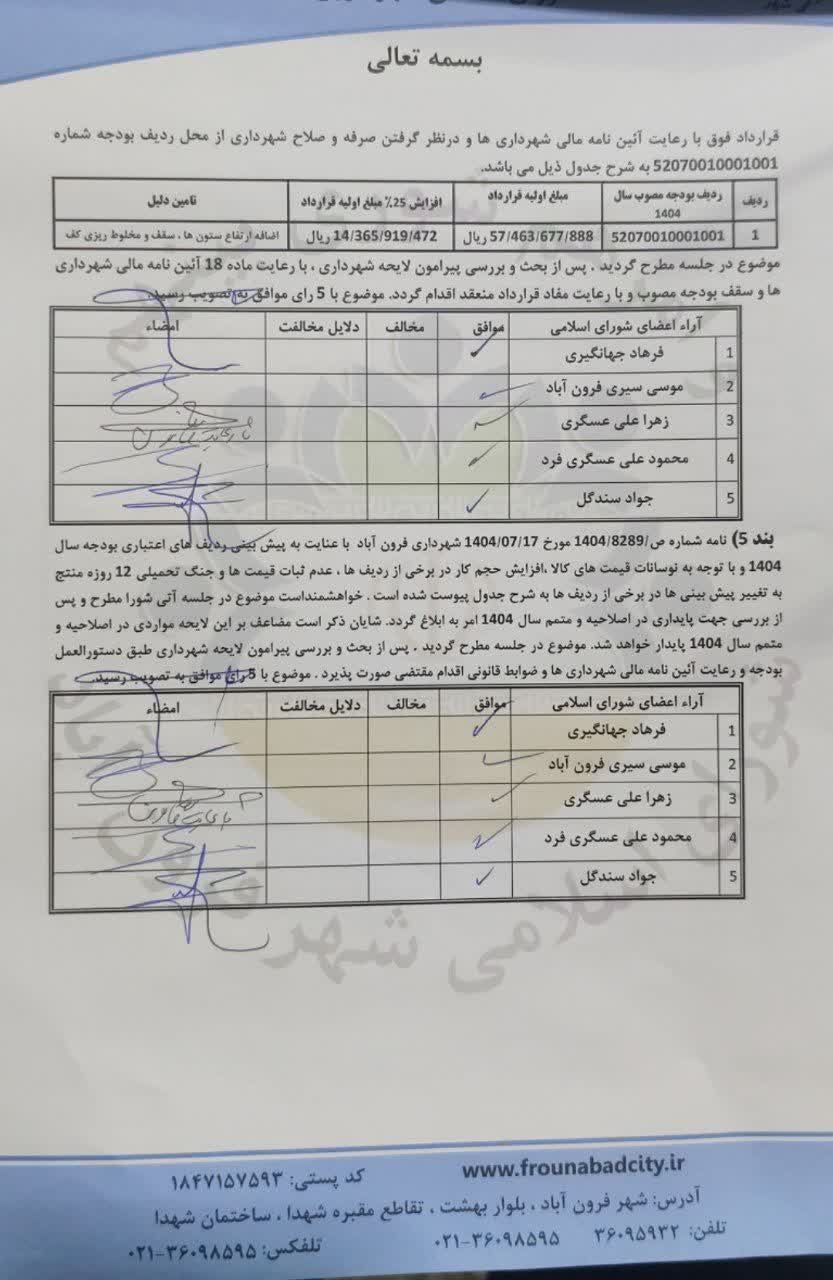 بسمه تعالی
قرارداد فوق با رعایت آئین نامه مالی شهرداری ها و درنظر گرفتن صرفه و صلاح شهرداری از محل ردیف بودجه شماره
52070010001001 به شرح جدول ذیل می باشد.
ردیف | ردیف بودجه مصوب سال 1404 | مبلغ اولیه قرارداد | افزایش 25٪ مبلغ اولیه قرارداد | تامین دلیل
1 | 52070010001001 | 57/463/677/888 ریال | 14/365/919/472 ریال | اضافه ارتفاع ستون ها ، سقف و مخلوط ریزی کف
موضوع در جلسه مطرح گردید ، پس از بحث و بررسی پیرامون لایحه شهرداری ، با رعایت ماده 18 آئین نامه مالی شهرداری
ها و سقف بودجه مصوب و با رعایت مفاد قرارداد منعقد اقدام گردد. موضوع با 5 رای موافق به تصویب رسید.
آراء اعضای شورای اسلامی | موافق | مخالف | دلایل مخالفت | امضاء
1 فرهاد جهانگیری
2 موسی سیری فرون آباد
3 زهرا علی عسگری
4 محمود علی عسگری فرد
5 جواد سندگل
بند 5) نامه شماره ص/1404/8289 مورخ 1404/07/17 شهرداری فرون آباد با عنایت به پیش بینی ردیف های اعتباری بودجه سال
1404 و با توجه به نوسانات قیمت های کالا ،افزایش حجم کار در برخی از ردیف ها ، عدم ثبات قیمت ها و جنگ تحمیلی 12 روزه منتج
به تغییر پیش بینی ها در برخی از ردیف ها به شرح جدول پیوست شده است . خواهشمنداست موضوع در جلسه آتی شورا مطرح و پس
از بررسی جهت پایداری در اصلاحیه و متمم سال 1404 امر به ابلاغ گردد. شایان ذکر است مضاعف بر این لایحه مواردی در اصلاحیه و
متمم سال 1404 پایدار خواهد شد. موضوع در جلسه مطرح گردید . پس از بحث و بررسی پیرامون لایحه شهرداری طبق دستورالعمل
بودجه و رعایت آئین نامه مالی شهرداری ها و ضوابط قانونی اقدام مقتضی صورت پذیرد . موضوع با 5 رای موافق به تصویب رسید.
آراء اعضای شورای اسلامی | موافق | مخالف | دلایل مخالفت | امضاء
1 فرهاد جهانگیری
2 موسی سیری فرون آباد
3 زهرا علی عسگری
4 محمود علی عسگری فرد
5 جواد سندگل
شورای اسلامی شهر فرون آباد
www.frounabadcity.ir
کد پستی: ۱۸۴۷۱۵۷۵۹۳
آدرس: شهر فرون آباد ، بلوار بهشت ، تقاطع مقبره شهدا ، ساختمان شهدا
تلفن: ۳۶۰۹۵۹۳۲ ۰۲۱-۳۶۰۹۸۵۹۵ تلفکس: ۰۲۱-۳۶۰۹۸۵۹۵